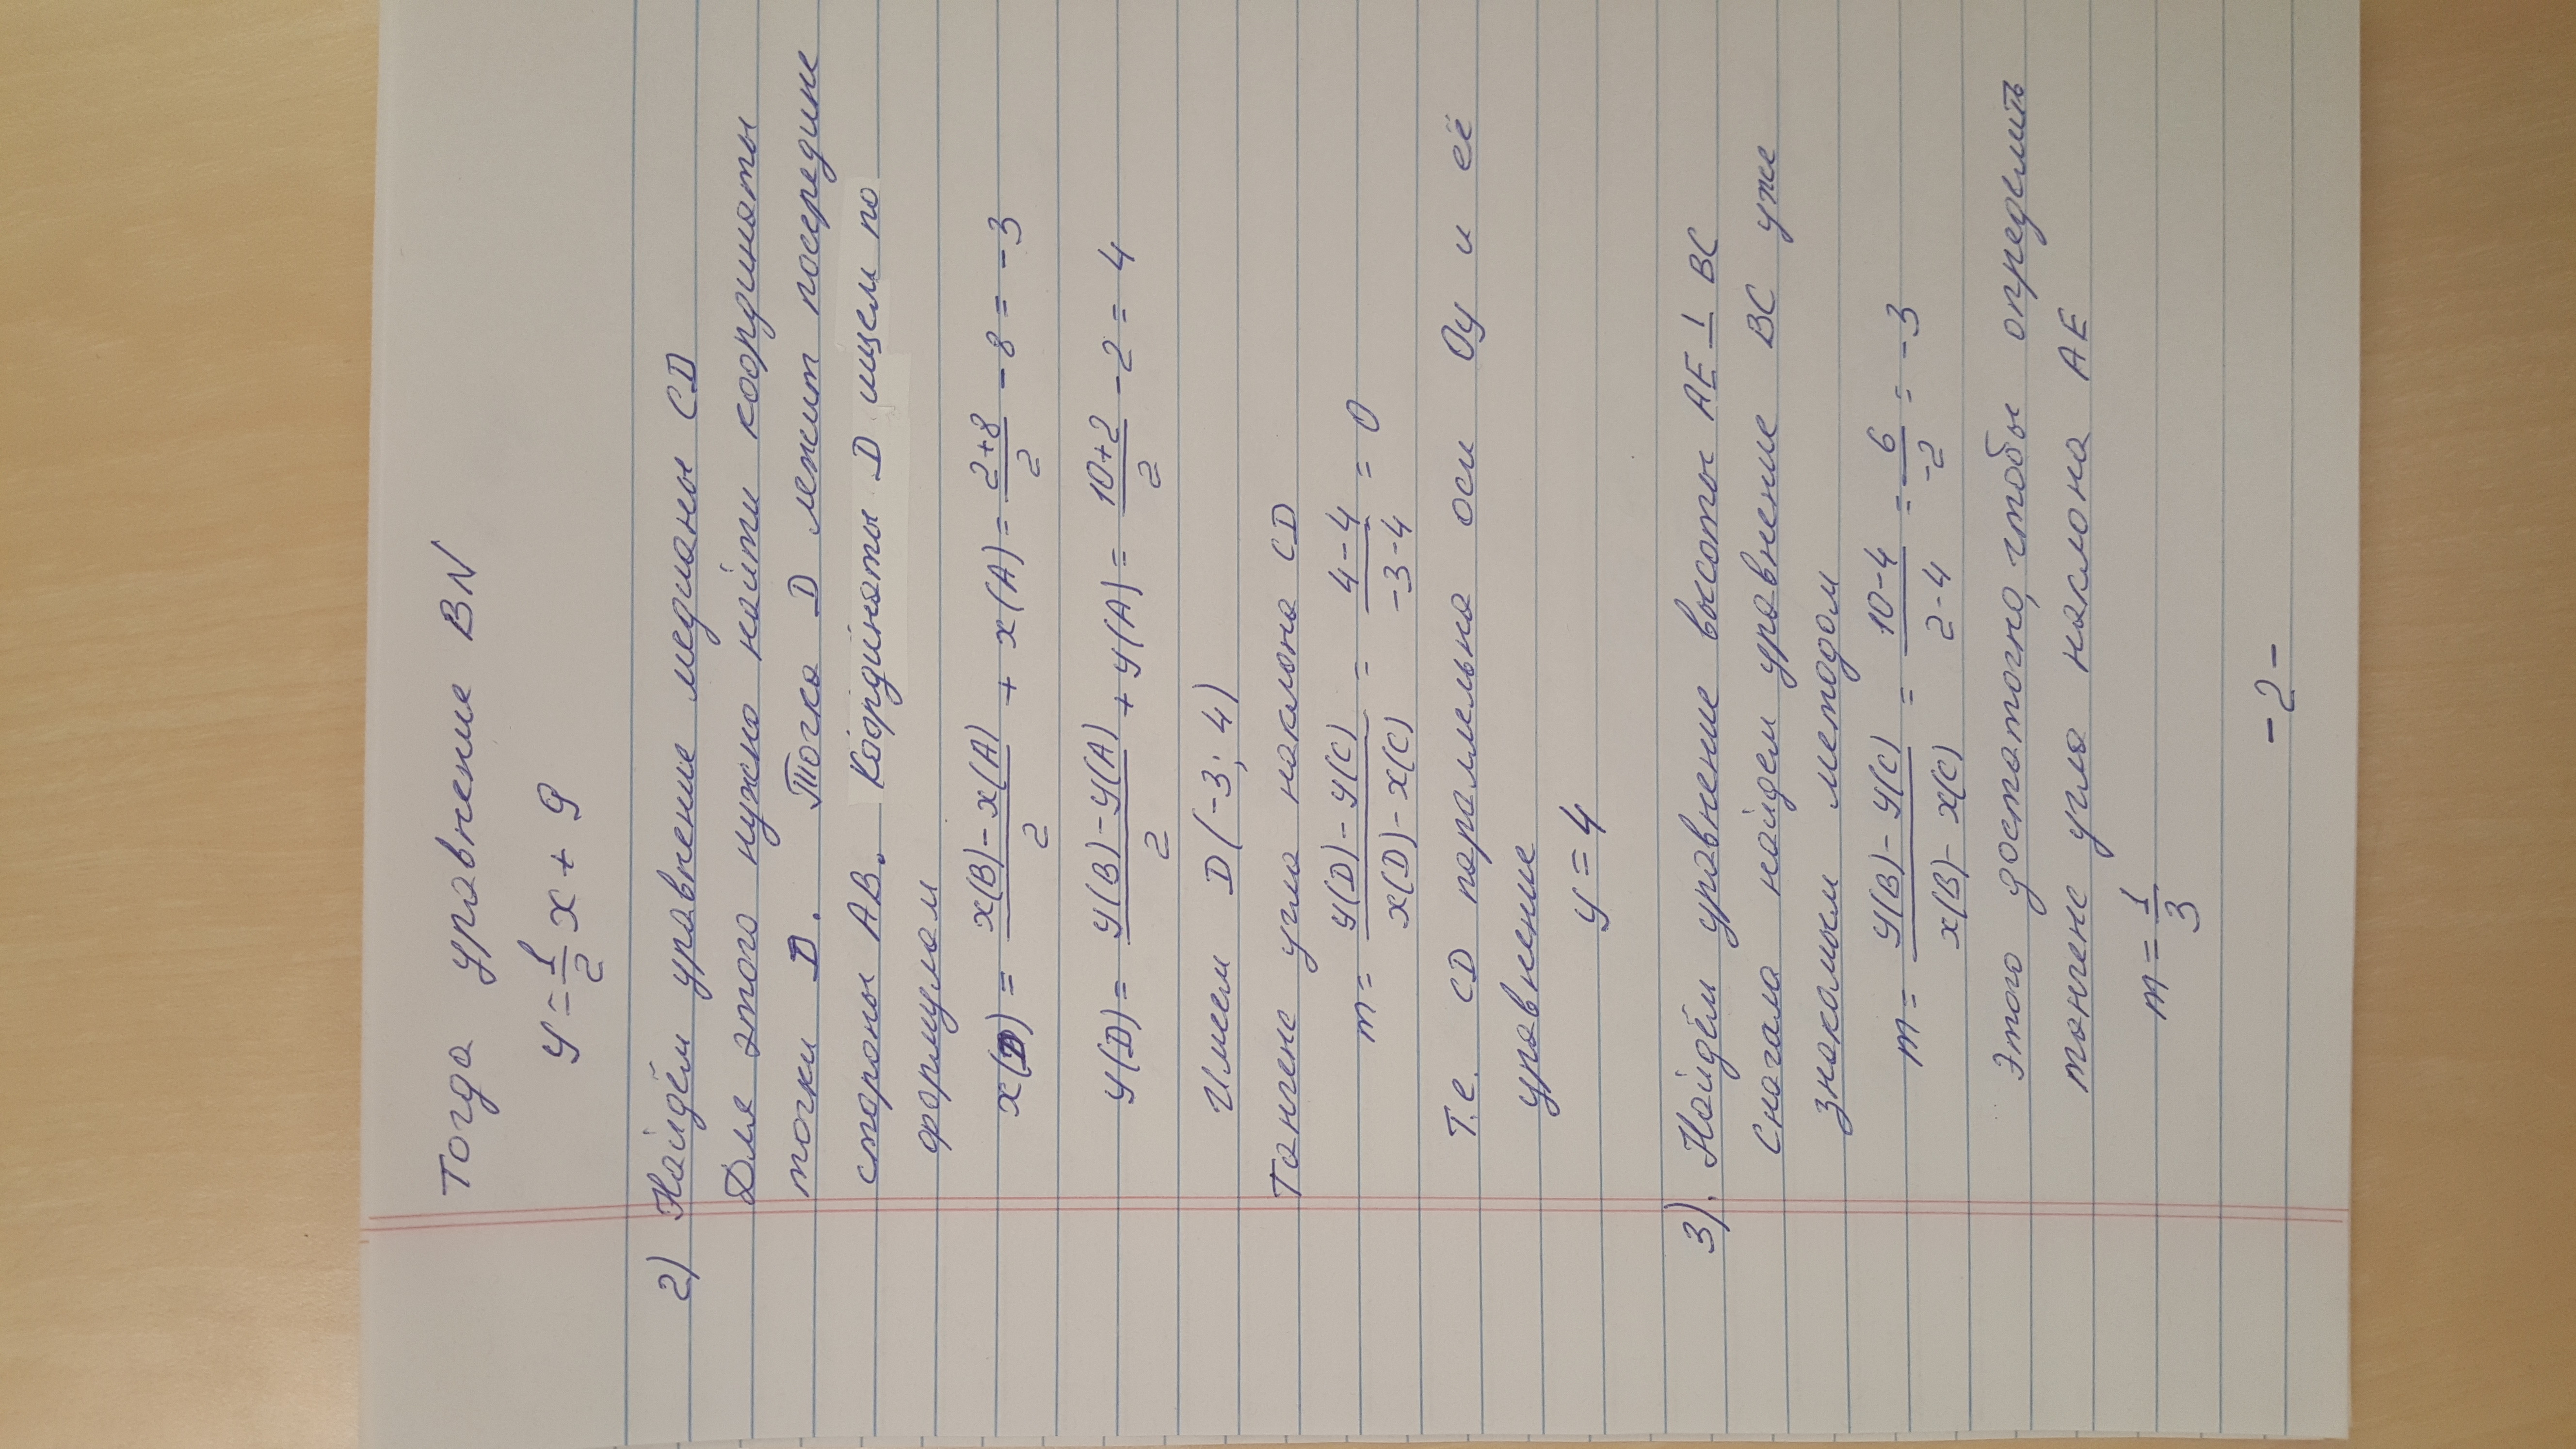 Тогда уравнение BN
y = 1/2 x + 9
2) Найдём уравнение медианы CD
Для этого нужно найти координаты
точки D. Точка D лежит посередине
стороны AB. Координаты D ищем по
формулам
x(D) = (x(B) - x(A))/2 + x(A) = (2+8)/2 - 8 = -3
y(D) = (y(B) - y(A))/2 + y(A) = (10+2)/2 - 2 = 4
Имеем D(-3; 4)
Тангенс угла наклона CD
m = (y(D) - y(C))/(x(D) - x(C)) = (4-4)/(-3-4) = 0
Т.е. CD параллельна оси Oy и её
уравнение
y = 4
3). Найдём уравнение высоты AE ⊥ BC
Сначала найдем уравнение BC уже
знакомым методом
m = (y(B) - y(C))/(x(B) - x(C)) = (10-4)/(2-4) = 6/-2 = -3
Этого достаточно, чтобы определить
тангенс угла наклона AE
m = 1/3
-2-